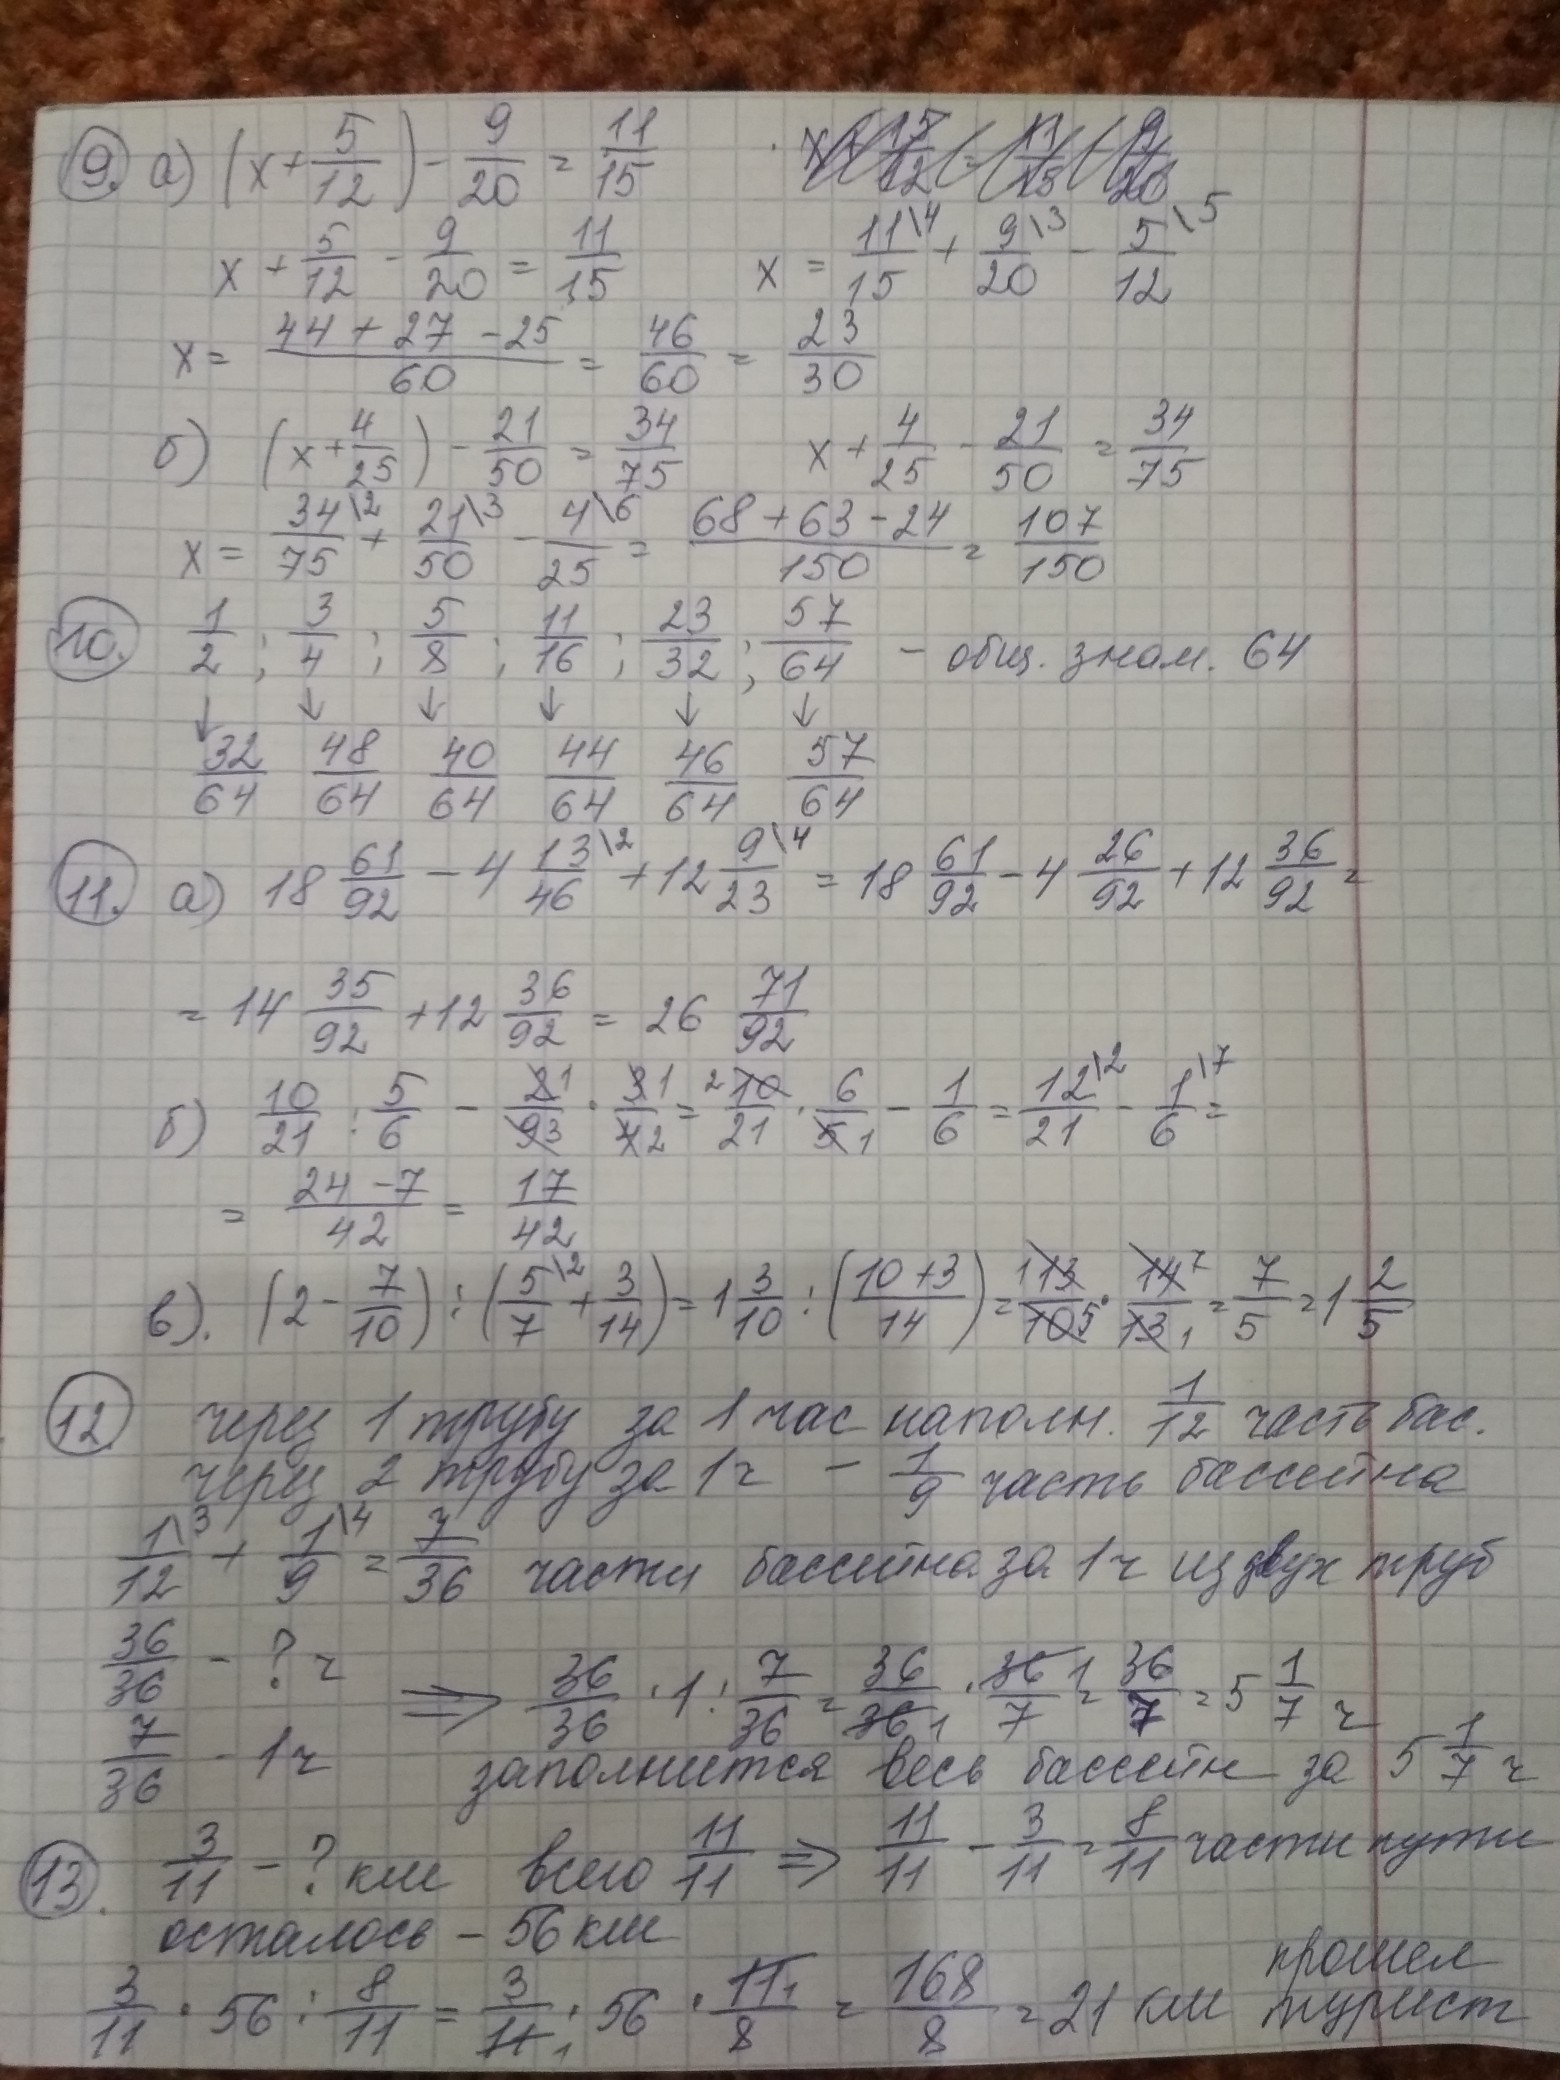 9. а) (x + 5/12) - 9/20 = 11/15
x + 5/12 - 9/20 = 11/15   x = 11\4/15 + 9\3/20 - 5\5/12
x = (44 + 27 - 25)/60 = 46/60 = 23/30
б) (x + 4/25) - 21/50 = 34/75   x + 4/25 - 21/50 = 34/75
x = 34\2/75 + 21\3/50 - 4\6/25 = (68 + 63 - 24)/150 = 107/150
10. 1/2 ; 3/4 ; 5/8 ; 11/16 ; 23/32 ; 57/64 - общ. знам. 64
↓ ↓ ↓ ↓ ↓ ↓
32/64 48/64 40/64 44/64 46/64 57/64
11. а) 18 61/92 - 4 13\2/46 + 12 9\4/23 = 18 61/92 - 4 26/92 + 12 36/92 =
= 14 35/92 + 12 36/92 = 26 71/92
б) 10/21 : 5/6 - 2 1/9 3 · 3 1/4 2 = 2 10/21 · 6/5 1 - 1/6 = 12\2/21 - 1\7/6 =
= (24 - 7)/42 = 17/42
в). (2 - 7/10) : (5\2/7 + 3/14) = 1 3/10 : ((10 + 3)/14) = 1 13/10 5 · 14 7/13 1 = 7/5 = 1 2/5
12 через 1 трубу за 1 час наполн. 1/12 часть бас.
через 2 трубу за 1ч - 1/9 часть бассейна
1\3/12 + 1\4/9 = 7/36 части бассейна за 1ч из двух труб
36/36 - ? ч
⇒ 36/36 · 1 : 7/36 = 36/36 1 · 36 1/7 = 36/7 = 5 1/7 ч
7/36 - 1ч   заполнится весь бассейн за 5 1/7 ч
13. 3/11 - ? км всего 11/11 ⇒ 11/11 - 3/11 = 8/11 части пути
осталось - 56 км
3/11 · 56 : 8/11 = 3/11 1 · 56 · 11 1/8 = 168/8 = 21 км прошел
турист